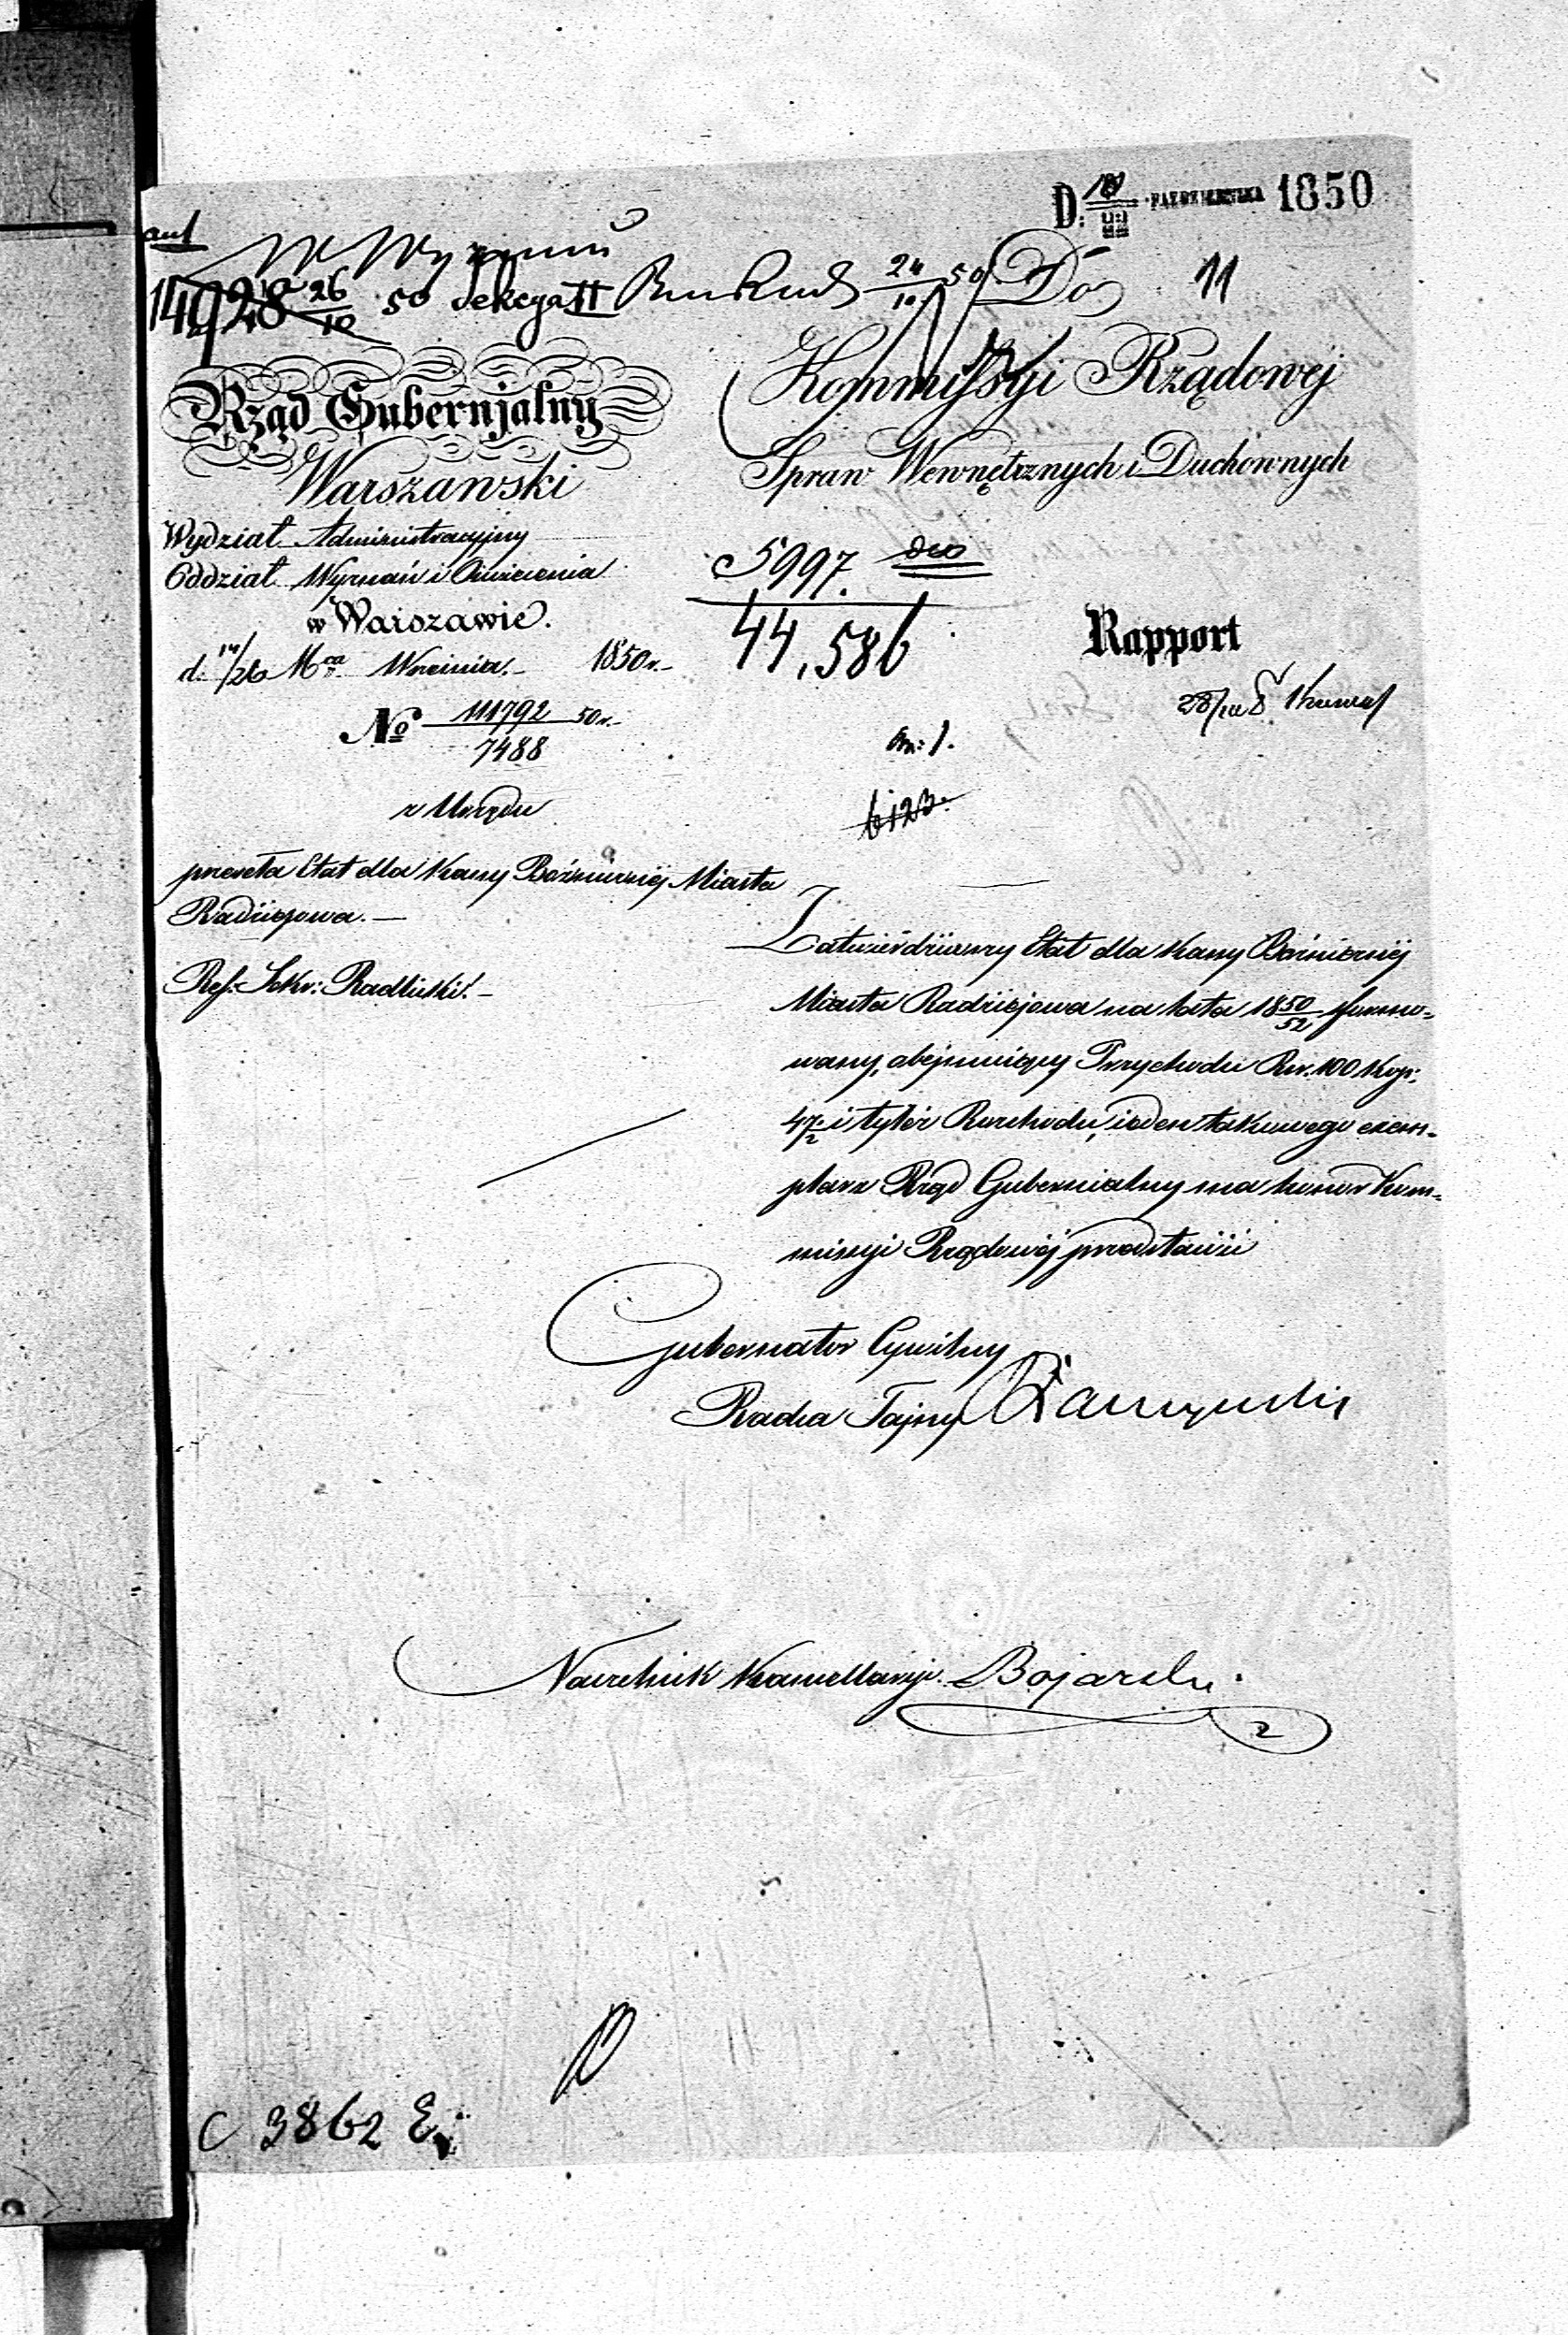 D. PAŹDZIERNIKA 1850
14928 26/10 50 Sekcya II 24/10 50 Do 11
Rząd Gubernjalny
Warszawski
Kommissyi Rządowej
Spraw Wewnętrznych i Duchownych
Wydział Administracyjny
Oddział Wyznań i Oświecenia
w Warszawie.
d. 14/26 Mca Września 1850 r.
5997.
44,586
Rapport
No 111792/7488 50 r.
an: 1.
z Urzędu
6123.
przesyła Etat dla Kassy Bóżnicznéj Miasta
Radziejowa.
Ref: Sekr: Radliński.
Zatwierdzony Etat dla Kassy Bóżniczej
Miasta Radziejowa na lata 1850/52 sformo-
wany, obejmujący Przychodu Rsr. 100 Kop:
47 1/2 i tyleż Rozchodu, jeden takowego exem-
plarz Rząd Gubernialny ma honor Kom-
missyi Rządowéj przedstawić
Gubernator Cywilny
Radca Tajny
Naczelnik Kancellaryi Bojarski
C 3862 E.